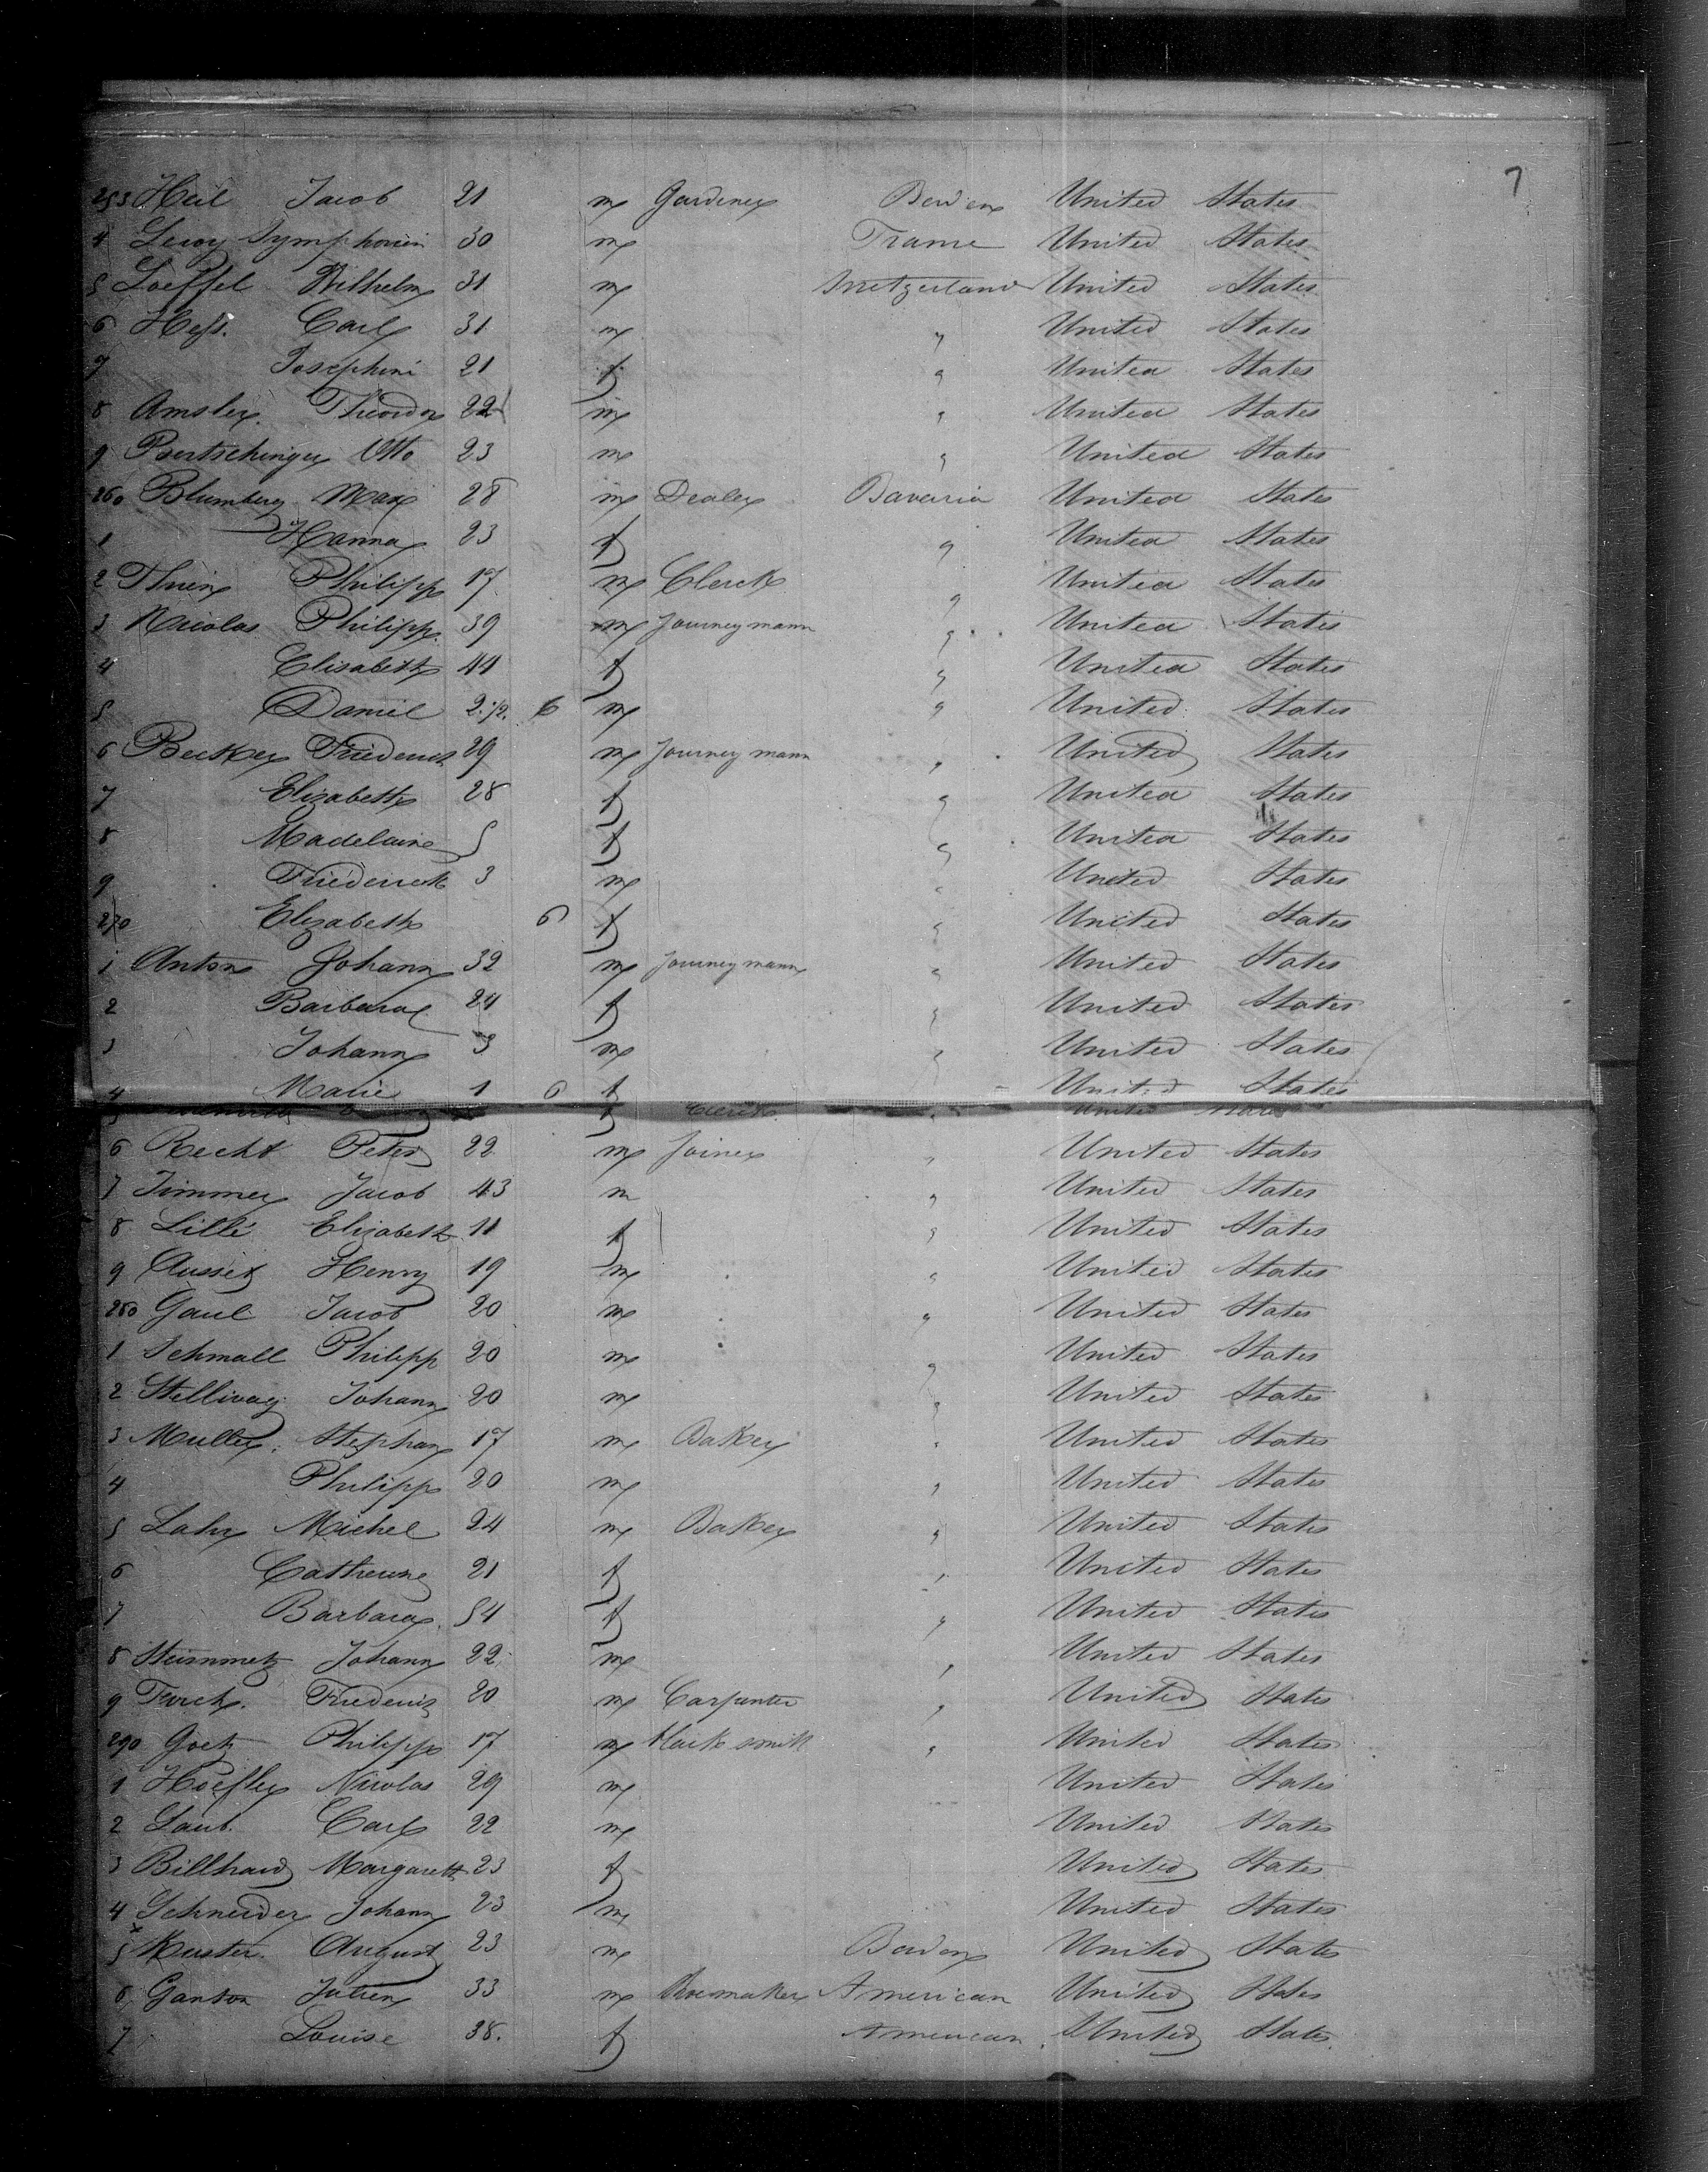 7
253 Heil Jacob 21 m Gardener Baden United States
4 Leroy Symphorien 30 m France United States
5 Loeffel Wilhelm 31 m Switzerland United States
6 Hess. Carl 31 m " United States
7 Josephini 21 f " United States
8 Amsler. Theodor 22 m " United States
9 Bertschinger Otto 23 m " United States
260 Blumberg Max 28 m Dealer Bavaria United States
1 Hanna 23 f " United States
2 Philipp 17 m Clerck " United States
3 Nicolas Philipp. 39 m Journeymann " United States
4 Elisabeth 44 f " United States
5 Daniel 2 1/2. 6 m " United States
6 Becker Friederick 29 m Journeymann " United States
7 Elizabeth 28 f " United States
8 Madelaine 5 f " United States
9 Friederick 3 m " United States
270 Elizabeth 6 f " United States
1 Anton Johann 32 m Journeymann " United States
2 Barbara 24 f " United States
3 Johann 3 m " United States
4 Marie 1 6 f United States
5 f Clerck " United States
6 Recht Peter 22 m Joiner " United States
7 Timmer Jacob 43 m " United States
8 Lilli Elizabeth 11 f " United States
9 Henry 19 m " United States
280 Gaul Jacob 20 m " United States
1 Schmall Philipp 20 m " United States
2 Stellwag Johann 20 m " United States
3 Muller. Stephan 17 m Baker " United States
4 Philipp 20 m " United States
5 Lahr Michel 24 m Baker " United States
6 Catherine 21 f " United States
7 Barbara. 54 f " United States
8 Steinmetz Johann 22 m " United States
9 Friederick 20 m Carpenter " United States
290 Goetz Philipp 17 m Black smith " United States
1 Hoefler Nicolas 29 m United States
2 Laub. Carl 22 m United States
3 Billhard Margareth 23 f United States
4 Schneider Johann 23 m United States
5 Kuster. August 23 m Baden United States
6 Ganton Julien 33 m Shoemaker American United States
7 Louise 38. f American United States